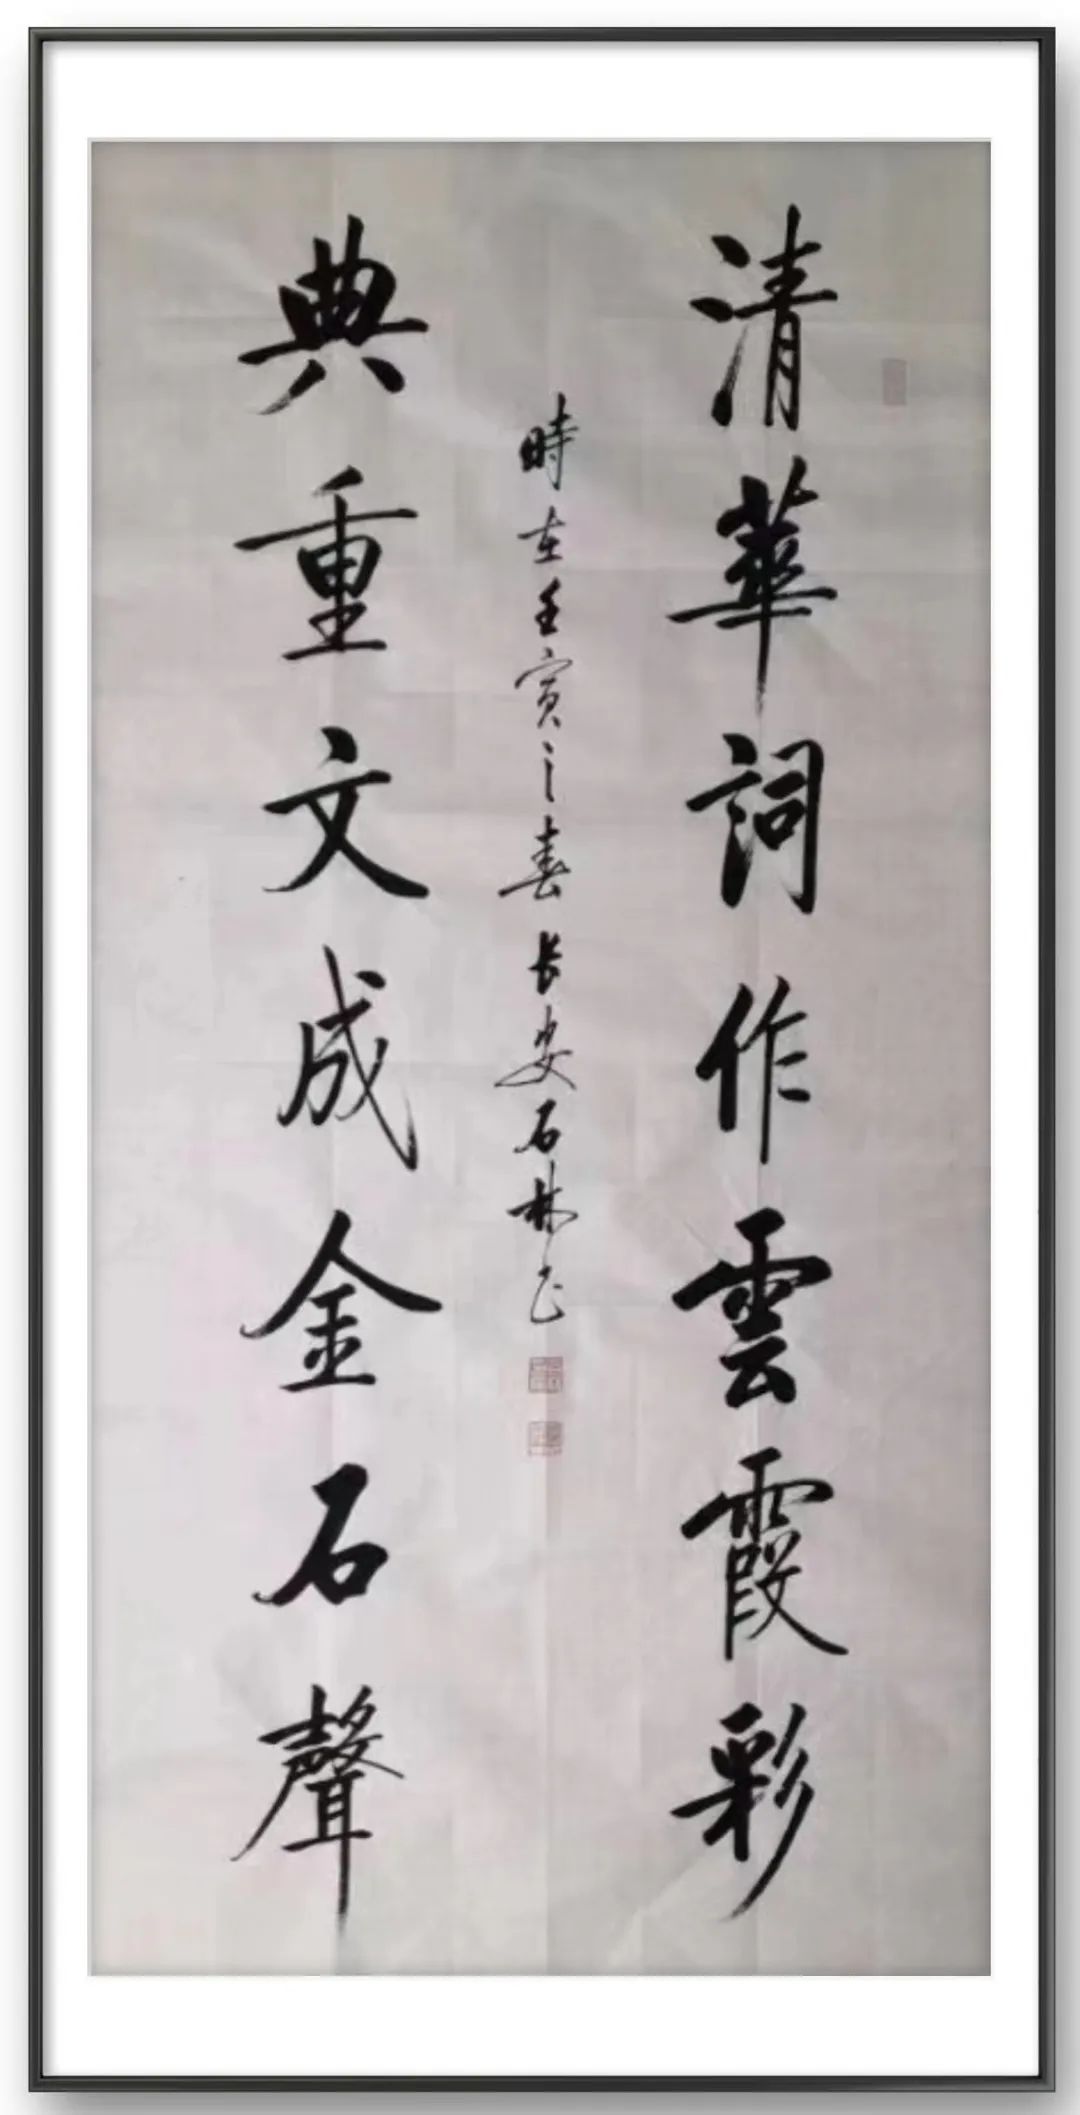 清華詞作雲霞彩
典重文成金石聲
時在壬寅之春長安石林書